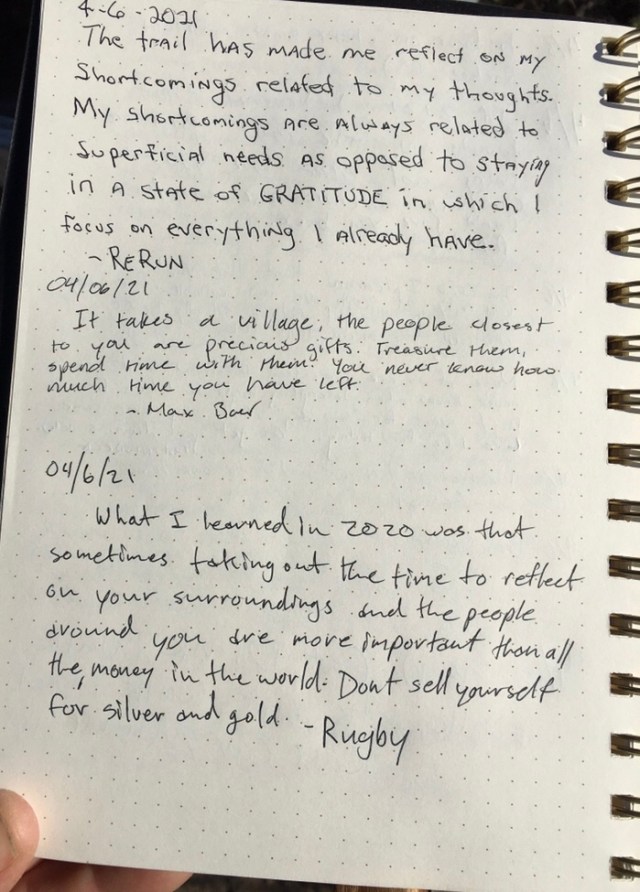 4-6-2021
The trail has made me reflect on my
Shortcomings related to my thoughts.
My shortcomings are always related to
Superficial needs as opposed to staying
in a state of GRATITUDE in which I
focus on everything I already have.
~ RERUN
04/06/21
It takes a village, the people closest
to you are precious gifts. Treasure them,
spend time with them. You never know how
much time you have left.
~ Max Baer
04/6/21
What I learned in 2020 was that
sometimes taking out the time to reflect
on your surroundings and the people
around you are more important than all
the money in the world. Dont sell yourself
for silver and gold. - Rugby